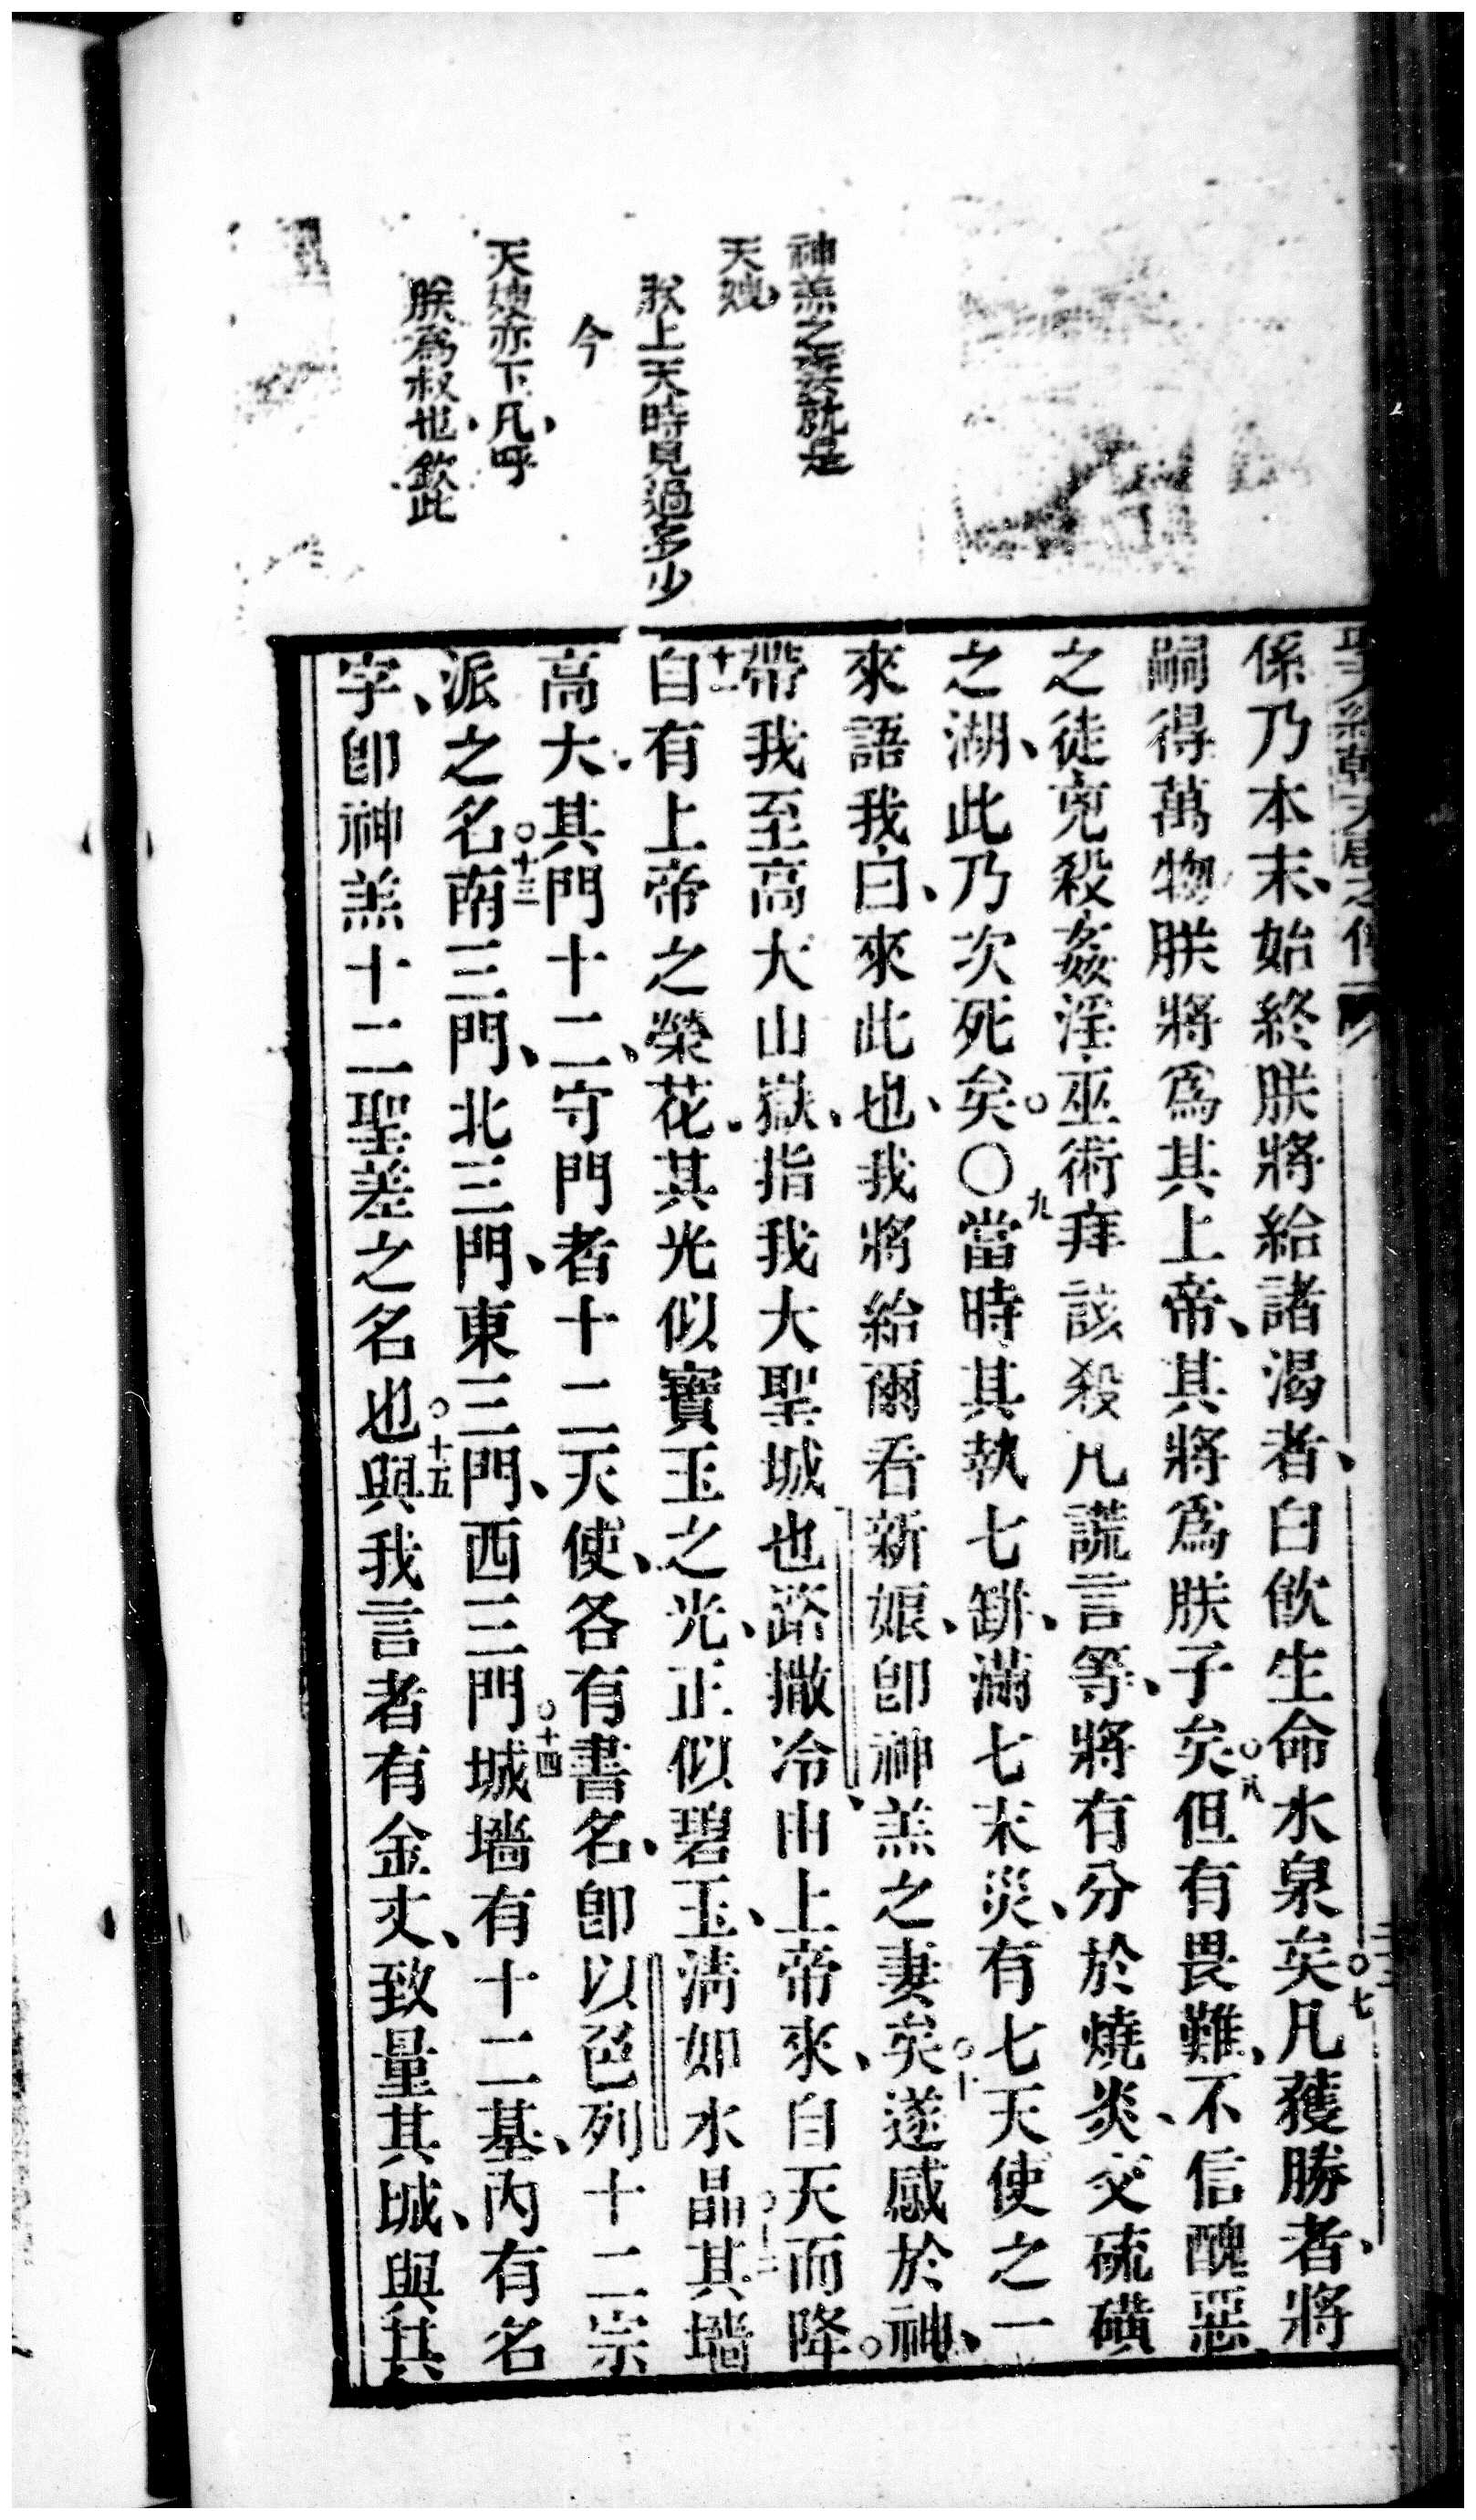 神羔之妻就是
天嫂
朕上天時見過多少
今
天嫂亦下凡、呼
朕為叔也、欽此
係乃本末、始終朕將給諸渴者、白飲生命水泉矣○七凡獲勝者、將
嗣得萬物朕將為其上帝、其將為朕子矣○八但有畏難、不信醜惡
之徒兇殺姦淫巫術拜該殺凡謊言等、將有分於燒炎、交硫磺
之湖、此乃次死矣○〇九當時其執七缾、滿七末災、有七天使之一、
來語我曰、來此也、我將給爾看新娘、卽神羔之妻矣○十遂感於神、
帶我至高大山嶽、指我大聖城也路撒冷、由上帝來、自天而降○
十一自有上帝之榮花、其光似寶玉之光、正似碧玉、淸如水晶○十二其墻
高大、其門十二、守門者十二天使、各有書名、卽以色列十二宗
派之名○十三南三門、北三門、東三門、西三門○十四城墻有十二基、內有名
字、卽神羔十二聖差之名也○十五與我言者有金丈、致量其城、與其